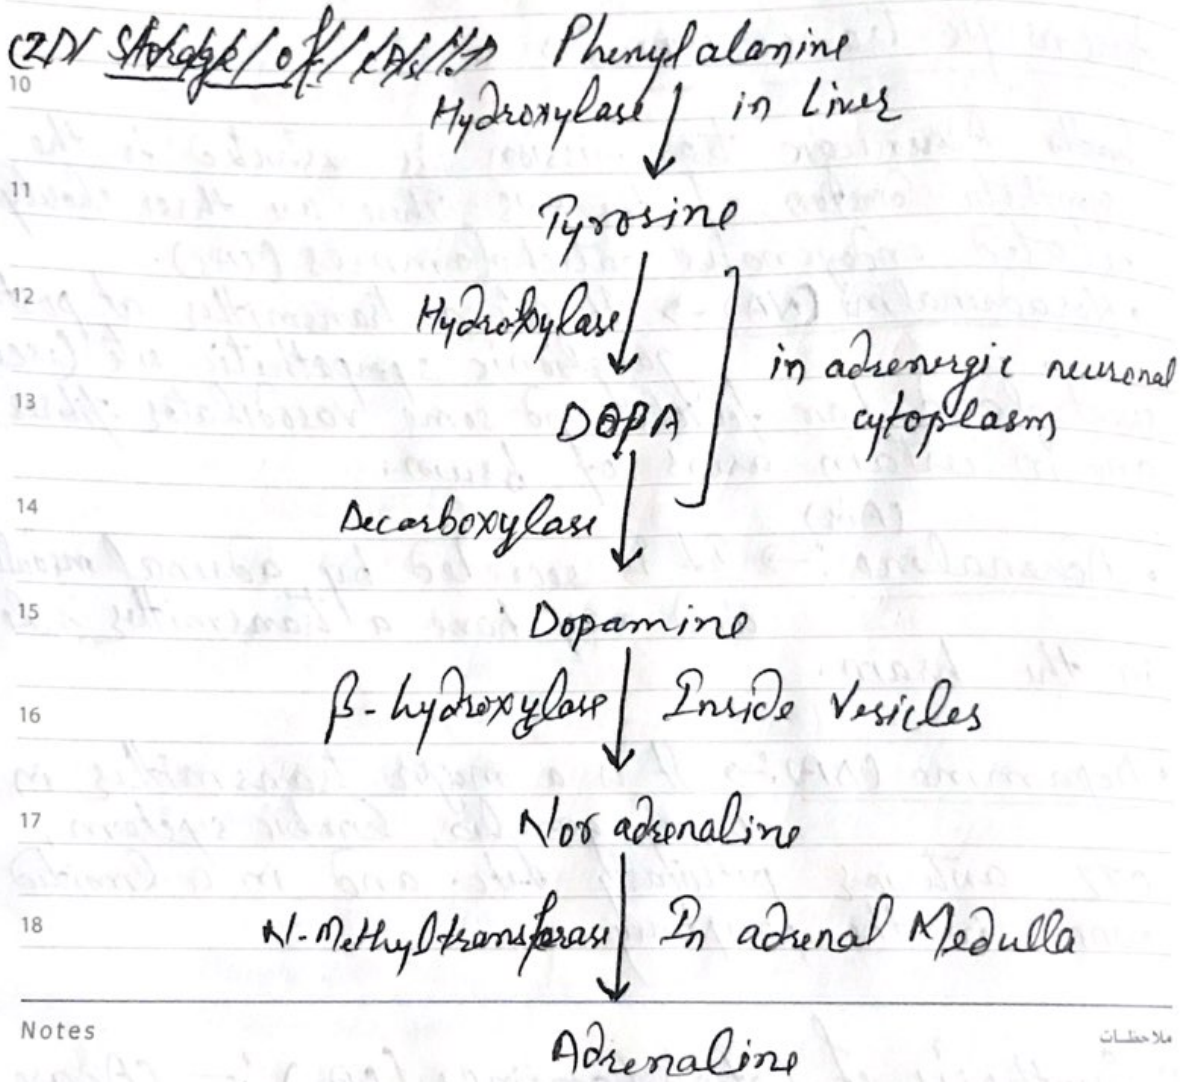 (2) Storage of CAs :→ Phenylalanine
10
Hydroxylase in Liver
11
Tyrosine
12
Hydroxylase
in adrenergic neuronal
13
cytoplasm
DOPA
14
Decarboxylase
15
Dopamine
β-hydroxylase Inside Vesicles
16
17
Nor adrenaline
18
N-Methyltransferase In adrenal Medulla
Notes
ملاحظات
Adrenaline